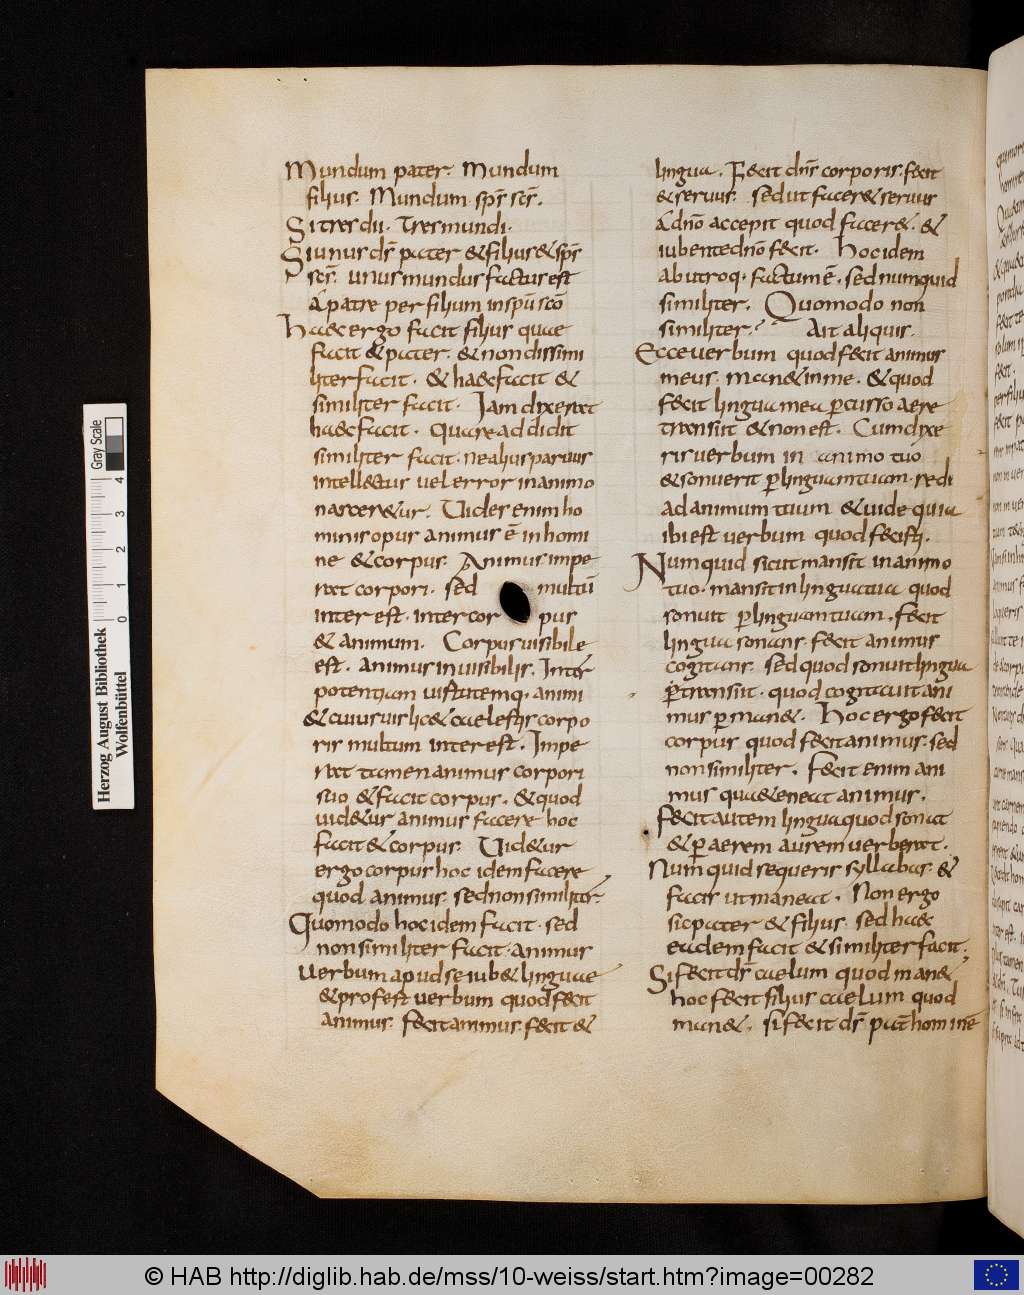 Mundum pater. Mundum
filius. Mundum sps̄ scs̄.
Si tres dii. Tres mundi.
Si unus ds̄ pater & filius & sps̄
scs̄. unus mundus factus est
a patre per filium in spū scō
Haec ergo facit filius quae
facit & pater. & non dissimi
liter facit. & haec facit &
similiter facit. Iam dixerat
haec facit. Quare addidit
similiter facit. ne alius prauus
intellectus uel error in animo
nasceretur. Uides enim ho
minis opus animus ē in homi
ne & corpus. Animus impe
rat corpori. sed multū
interest. inter cor pus
& animum. Corpus uisibile
est. animus inuisibilis. Inter
potentiam uirtutemq. animi
& cuiusuis licet caelestis corpo
ris multum interest. Impe
rat tamen animus corpori
suo & facit corpus. & quod
uidetur animus facere hoc
facit & corpus. Uidetur
ergo corpus hoc idem facere
quod animus. sed non similiter.
Quomodo hoc idem facit. sed
non similiter facit. animus
uerbum apud se iubet linguae
& profest uerbum quod fecit
animus. fecit animus. fecit &
lingua. Fecit dn̄s corporis. fecit
& seruus. sed ut faceret seruus
a dn̄o accepit quod faceret. &
iubente dn̄o fecit. Hoc idem
ab utroq. factum ē. sed numquid
similiter. Quomodo non
similiter? Ait aliquis.
Ecce uerbum quod fecit animus
meus. manet in me. & quod
fecit lingua mea percusso aere
transiit & non est. Cum dixe
ris uerbum in animo tuo
& sonuerit p linguam tuam. redi
ad animum tuum & uide quia
ibi est uerbum quod fecisti.
Numquid sicut mansit in animo
tuo. mansit in lingua tua quod
sonuit p linguam tuam. fecit
lingua sonans. fecit animus
cogitans. sed quod sonuit lingua
ptransiit. quod cogitauit ani
mus p manet. Hoc ergo fecit
corpus quod fecit animus. sed
non similiter. Fecit enim ani
mus qua&eneat animus.
fecit autem lingua quod sonat
& p aerem aurem uerberat.
Numquid sequeris syllabas. &
facis ut maneat. Non ergo
sic pater & filius. sed haec
eadem facit & similiter facit.
Si fecit ds̄ caelum quod manet
hoc fecit filius caelum quod
manet. si fecit ds̄ pat̄ hominē
Herzog August Bibliothek
Wolfenbüttel
0 1 2 3 4
Gray Scale
© HAB http://diglib.hab.de/mss/10-weiss/start.htm?image=00282